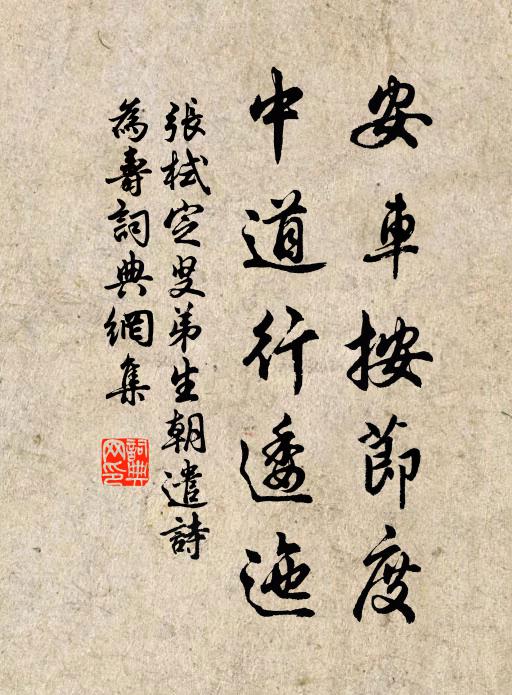 安車按節度
中道行逶迤
張栻定叟弟生朝遣詩
為壽詞典網集
詞典網印